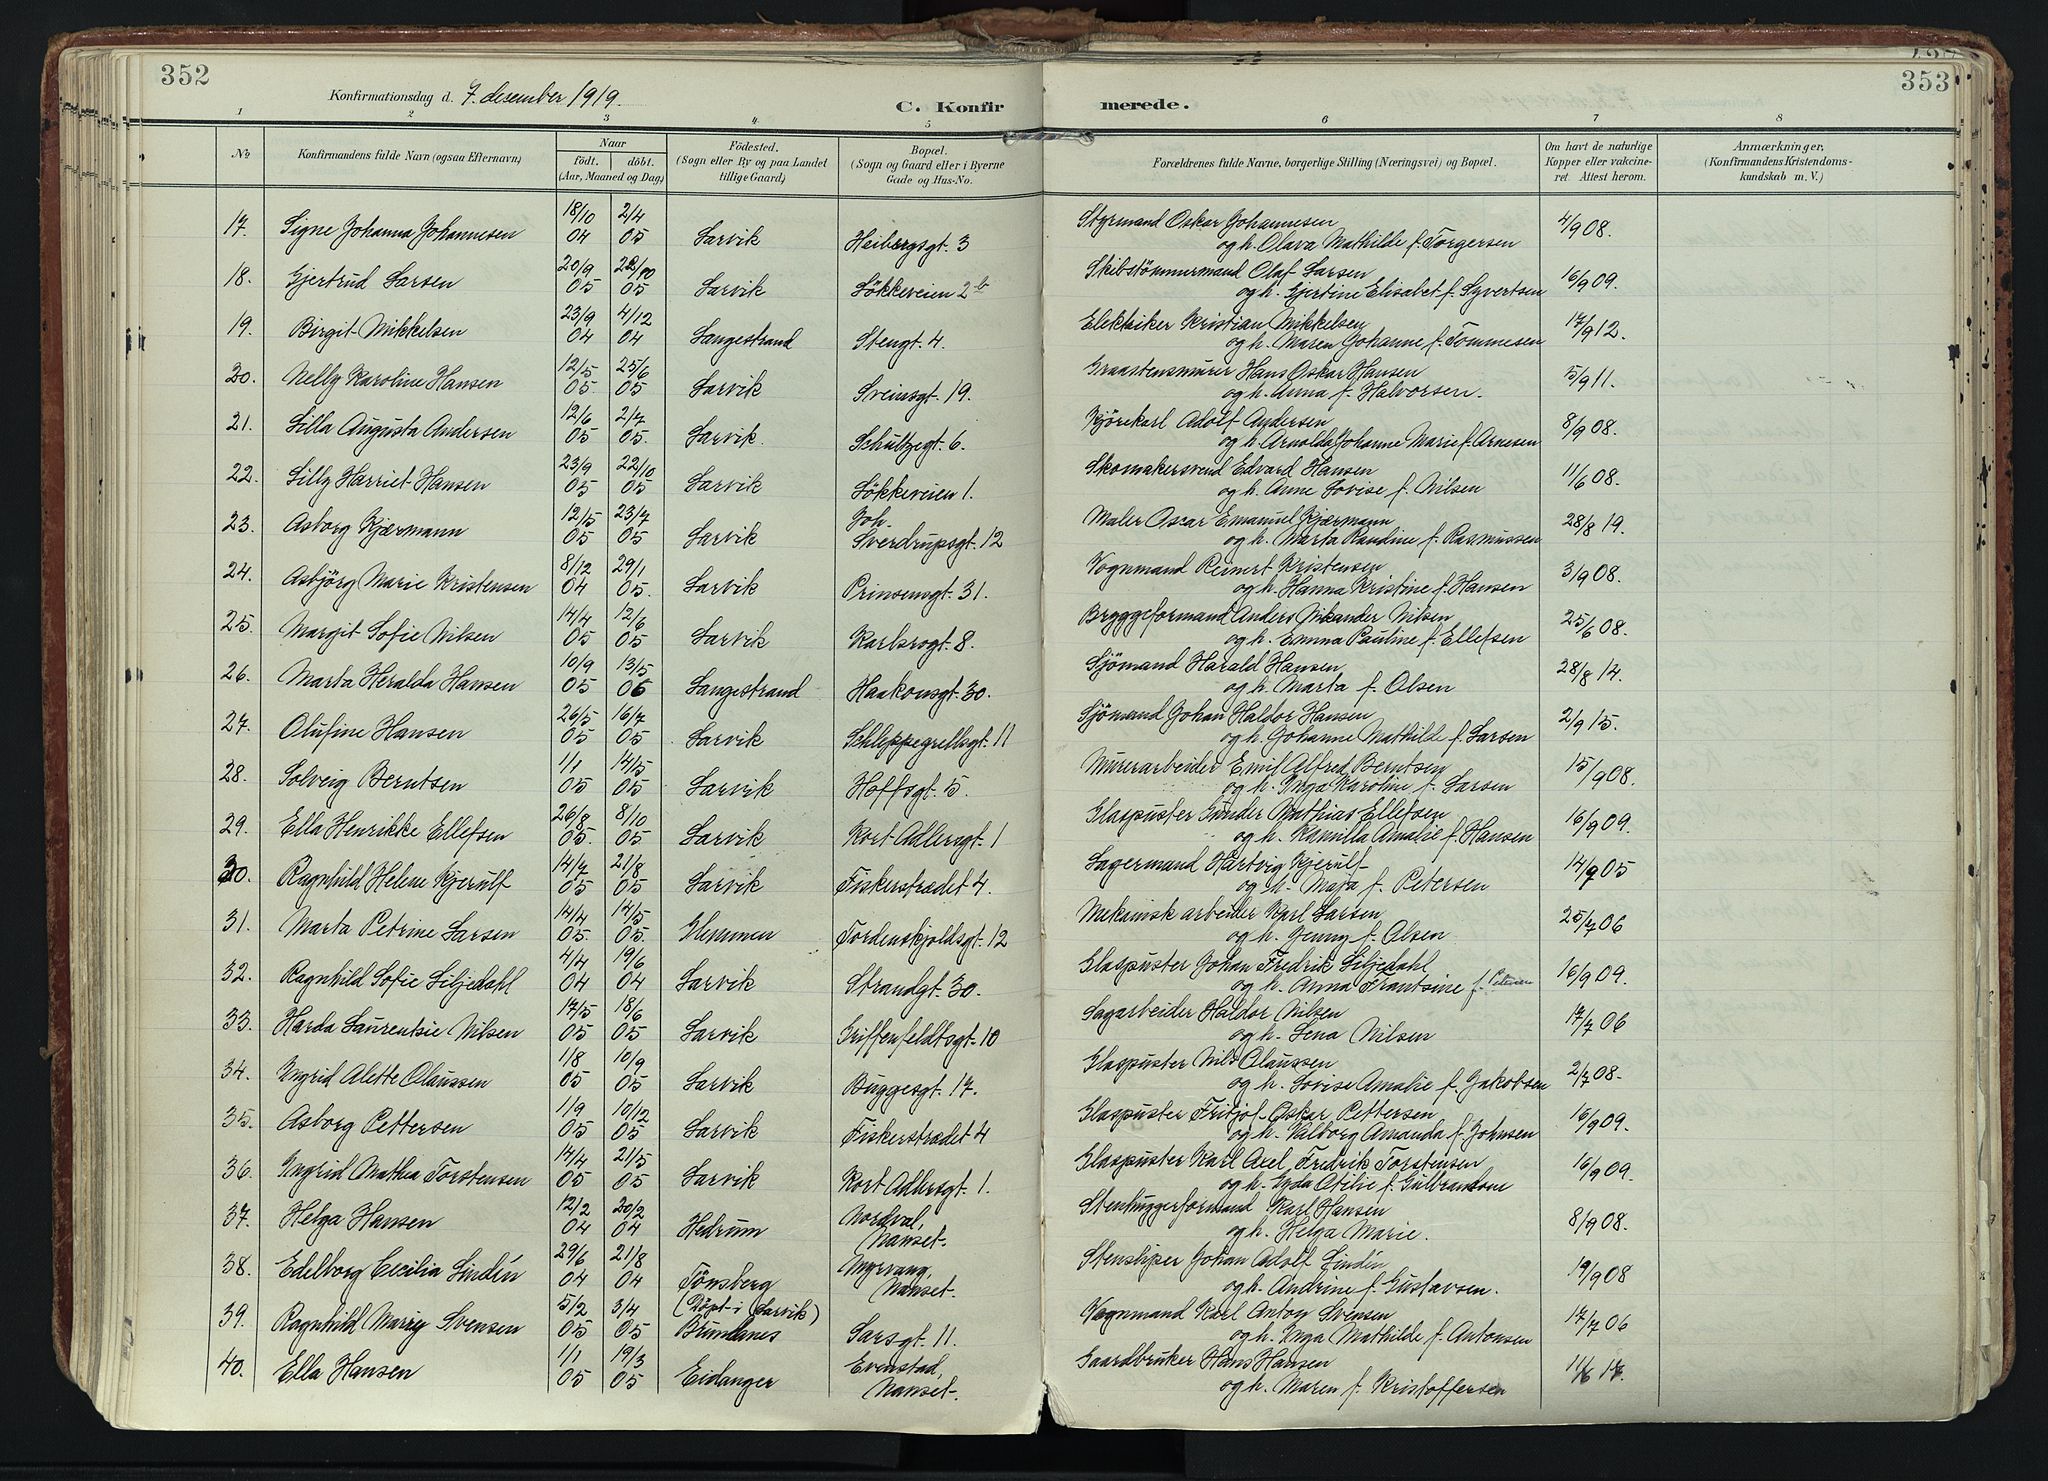 352
353
Konfirmationsdag d. 7. desember 1919.
C. Konfir merede.
1 2 3 4 5 6 7 8
No
Konfirmandens fulde Navn (ogsaa Efternavn)
Naar
födt. döbt.
(Aar, Maaned og Dag)
Födested.
(Sogn eller By og paa Landet
tillige Gaard)
Bopæl.
(Sogn og Gaard eller i Byerne
Gade og Hus-No.
Forældrenes fulde Navne, borgerlige Stilling (Næringsvei) og Bopæl.
Om havt de naturlige
Kopper eller vakcine-
ret Attest herom.
Anmærkninger,
(Konfirmandens Kristendoms-
kundskab m. V.)
17. Signe Johanna Johannesen 18/10 04 2/4 05 Larvik Heibergsgt. 3 Styrmand Oskar Johannesen 4/9 08.
og h. Olava Mathilde f. Torgersen
18. Gjertrud Larsen 20/9 05 22/10 05 Larvik Løkkeveien 2b Skibstömmermand Olaf Larsen 16/9 09.
og h. Gjertine Elisabet f. Syvertsen
19. Birgit Mikkelsen 23/9 04 4/12 04 Langestrand Stengt. 4. Elektriker Kristian Mikkelsen 17/9 12.
og h. Maren Johanne f. Tommesen
20. Nelly Karoline Hansen 12/5 05. 25/6 05 Larvik Sveinsgt. 19. Graastensmurer Hans Oskar Hansen 5/9 11.
og h. Anna f. Halvorsen.
21. Lilla Augusta Andersen 12/6 05 2/7 05. Larvik. Schultzegt. 6. Kjörekarl Adolf Andersen 8/9 08.
og h. Arnolda Johanne Marie f. Arnesen
22. Lilly Harriet Hansen 23/9 05 22/10 05 Larvik Løkkeveien 1. Skomakersvend Edvard Hansen 11/6 08.
og h. Anne Lovise f. Nilsen
23. Asborg Kjærmann 12/5 05 23/7 05 Larvik Joh. Sverdrupsgt. 12 Maler Oscar Emanuel Kjærmann 28/8 19.
og h. Marta Randine f. Rasmussen
24. Asbjörg Marie Kristensen 8/12 04 29/1 05. Larvik Prinsensgt. 31. Vognmand Reinert Kristensen 3/9 08.
og h. Hanna Kristine f. Hansen
25. Margit Sofie Nilsen 14/4 05 12/6 05 Larvik Karlsrogt. 8. Bryggeformand Anders Nikander Nilsen 25/6 08.
og h. Emma Pauline f. Ellefsen
26. Marta Heralda Hansen 10/9 05 13/5 06 Langestrand Haakonsgt. 30. Sjömand Harald Hansen 28/8 14.
og h. Marta f. Olsen
27. Olufine Hansen 26/5 05 16/7 05 Larvik Schleppegrellsgt. 11 Sjömand Johan Haldor Hansen 2/9 15.
og h. Johanne Mathilde f. Larsen
28. Solveig Berntsen 1/1 05 14/5 05 Larvik Hoffsgt. 5. Murerarbeider Emil Alfred Berntsen 15/9 08.
og h. Inga Karoline f. Larsen
29. Ella Henrikke Ellefsen 26/8 05. 8/10 05 Larvik Kort Adlersgt. 1 Glaspuster Gunder Mathias Ellefsen 16/9 09.
og h. Kamilla Amalie f. Hansen
30. Ragnhild Helene Kjerulf 14/7 05 21/8 05 Larvik Fiskerstrædet 4. Lagermand Hartvig Kjerulf 14/9 05
og h. Maja f. Petersen
31. Marta Petrine Larsen 14/4 05. 14/5 05. Glemmen Tordenskjoldsgt. 12 Mekanisk arbeider Karl Larsen 25/7 06
og h. Jenny f. Olsen
32. Ragnhild Sofie Liljedahl 4/4 04 19/6 04 Larvik Strandgt. 30. Glaspuster Johan Fredrik Liljedahl 16/9 09.
og h. Anna Frantsine f. Petersen
33. Harda Laurentsie Nilsen 17/5 05 18/6 05 Larvik Griffenfeldtsgt. 10 Sagarbeider Haldor Nilsen 17/7 06
og h. Lena Nilsen
34. Ingrid Alette Claussen 1/8 05 10/9 05 Larvik Buggesgt. 17. Glaspuster Nils Claussen 2/7 08.
og h. Lovise Amalie f. Jakobsen
35. Asborg Pettersen 1/9 05 10/12 05 Larvik Fiskerstrædet 4 Glaspuster Fritjof Oskar Pettersen 16/9 09.
og h. Valborg Amanda f. Johnsen
36. Ingrid Mathea Torstensen 14/4 05 21/5 05 Larvik Kort Adlersgt. 1. Glaspuster Karl Axel Fredrik Torstensen 16/9 09.
og h. Lyda Otilie f. Gulbransone
37. Helga Hansen 12/2 04 20/2 04 Hedrum Nordval, Nanset. Stenhuggerformand Karl Hansen 8/9 08.
og h. Helga Marie.
38. Edelborg Cecilia Lindén 29/6 04 21/8 04 Tönsberg Myrvang, Nanset. Stensliper Johan Adolf Lindén 19/9 08
og h. Andrine f. Gustavsen.
39. Ragnhild Marry Svensen 5/2 05 3/4 05 (Döpt i Larvik) Brunlanes Larsgt. 11. Vognmand Karl Anton Svensen 17/7 06
og h. Inga Mathilde f. Antonsen
40. Ella Hansen 1/1 05 19/3 05 Eidanger Evenstad, Nanset. Gaardbruker Hans Hansen 11/6 17.
og h. Maren f. Kristoffersen